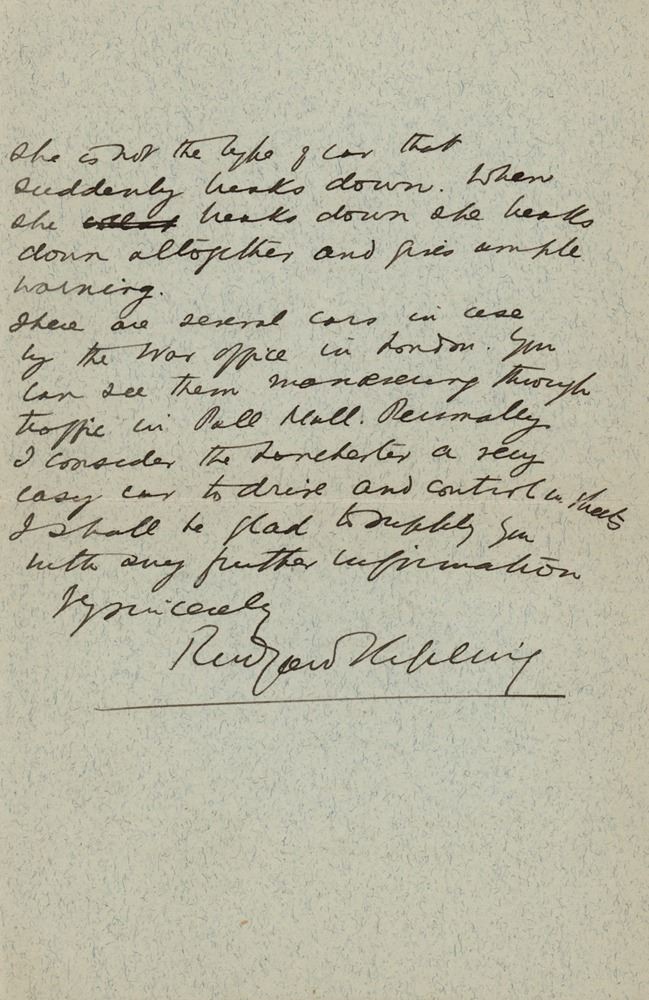 she is not the type of car that
suddenly breaks down. When
she breaks down she breaks
down altogether and gives ample
warning.
There are several cars in use
by the War office in London. You
can see them manoeuvring through
traffic in Pall Mall. Personally
I consider the Lanchester a very
easy car to drive and control in streets
I shall be glad to supply you
with any further information
Yrs sincerely
Rudyard Kipling